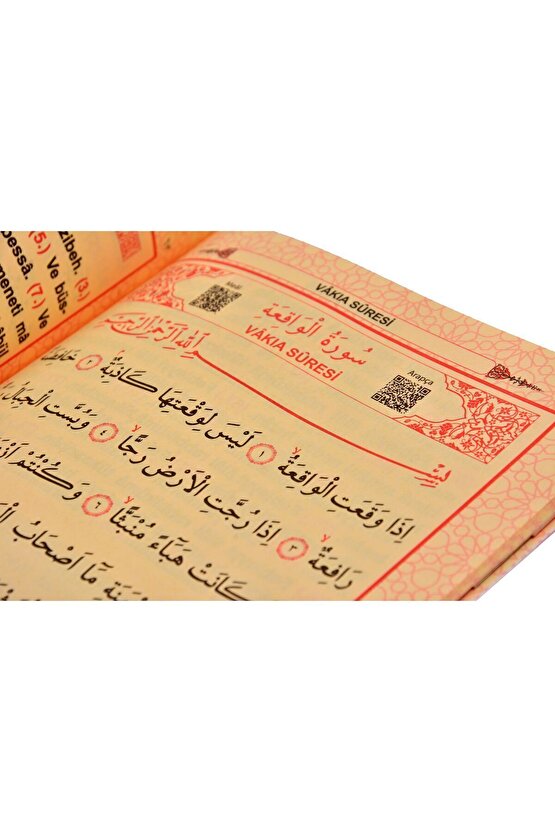 zibeh. (3.)
(5.) Ve büs-
bessâ. (7.) Ve
meneti mâ
VÂKIA SÛRESİ
Meâl
سُورَةُ الْوَاقِعَةِ
VÂKIA SÛRESİ
Arapça
بِسْمِ اللّٰهِ الرَّحْمٰنِ الرَّحِيمِ
اِذَا وَقَعَتِ الْوَاقِعَةُ ١ لَيْسَ لِوَقْعَتِهَا كَاذِبَةٌ ٢ خَافِضَةٌ
رَافِعَةٌ ٣ اِذَا رُجَّتِ الْاَرْضُ رَجًّا ٤ وَبُسَّتِ الْجِبَالُ
كَانَتْ هَبَاءً مُنْبَثًّا ٦ وَكُنْتُمْ
مَا اَصْحَابُ